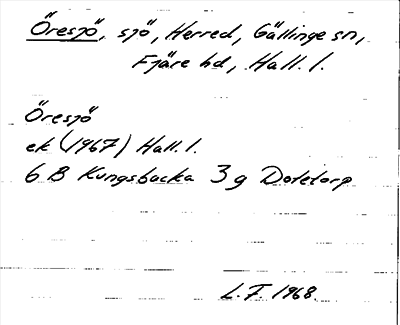 Öresjö, sjö, Herred, Gällinge sn,
Fjäre hd, Hall. l.
Öresjö
ek (1967) Hall. l.
6 B Kungsbacka 3 g Dotetorp
L.F. 1968.